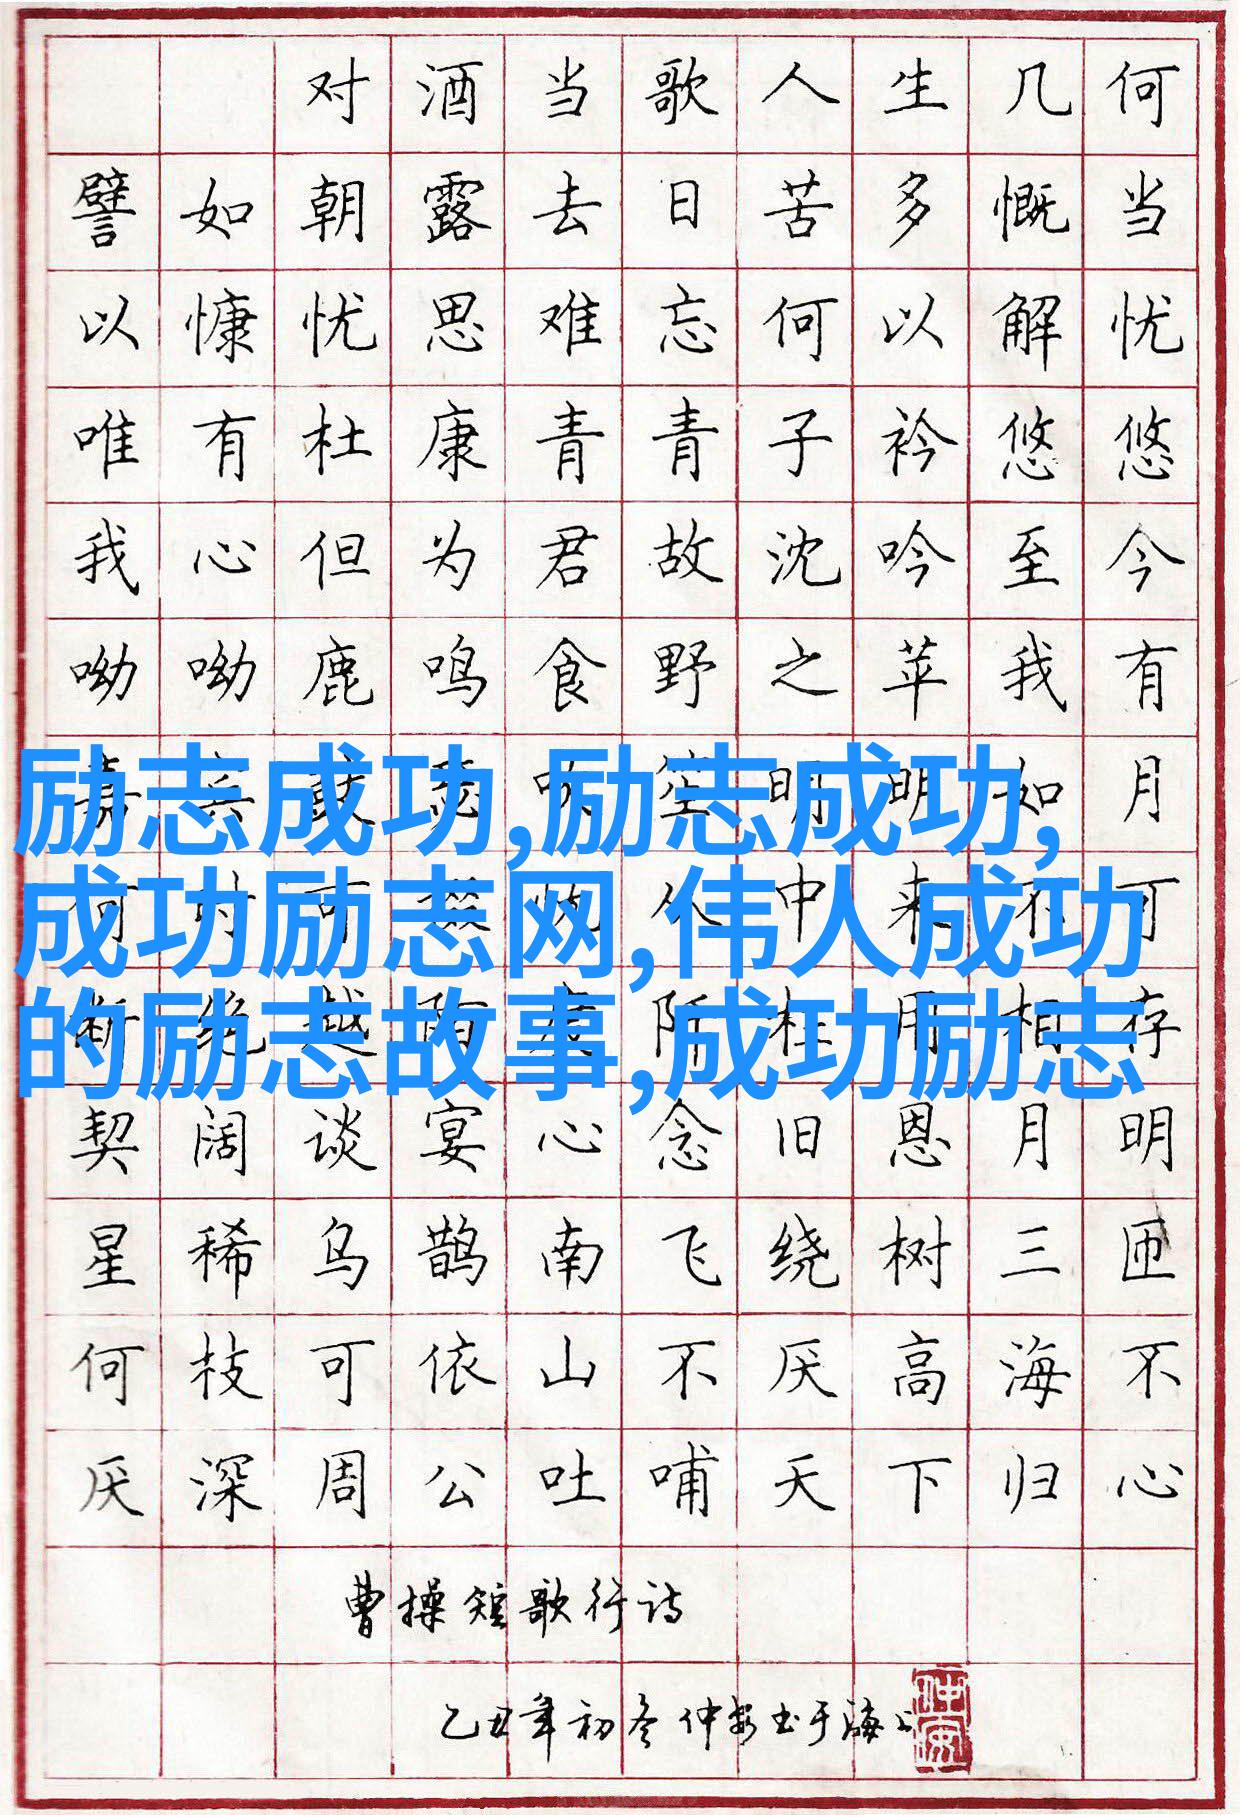 对酒当歌人生几何
譬如朝露去日苦多慨当
以慷忧思难忘何以解忧
唯有杜康青青子衿悠悠
我心但为君故沈吟至今
呦呦鹿鸣食野之苹我有
励志成功,励志成功,
明明如月
成功励志网,伟人成功
何时可从中来不可
的励志故事,成功励志
断绝越陌度阡枉用相存
契阔谈宴心念旧恩月明
星稀乌鹊南飞绕树三匝
何枝可依山不厌高海不
厌深周公吐哺天下归心
曹操短歌行诗
乙丑年初冬仲安书于海上
仲安